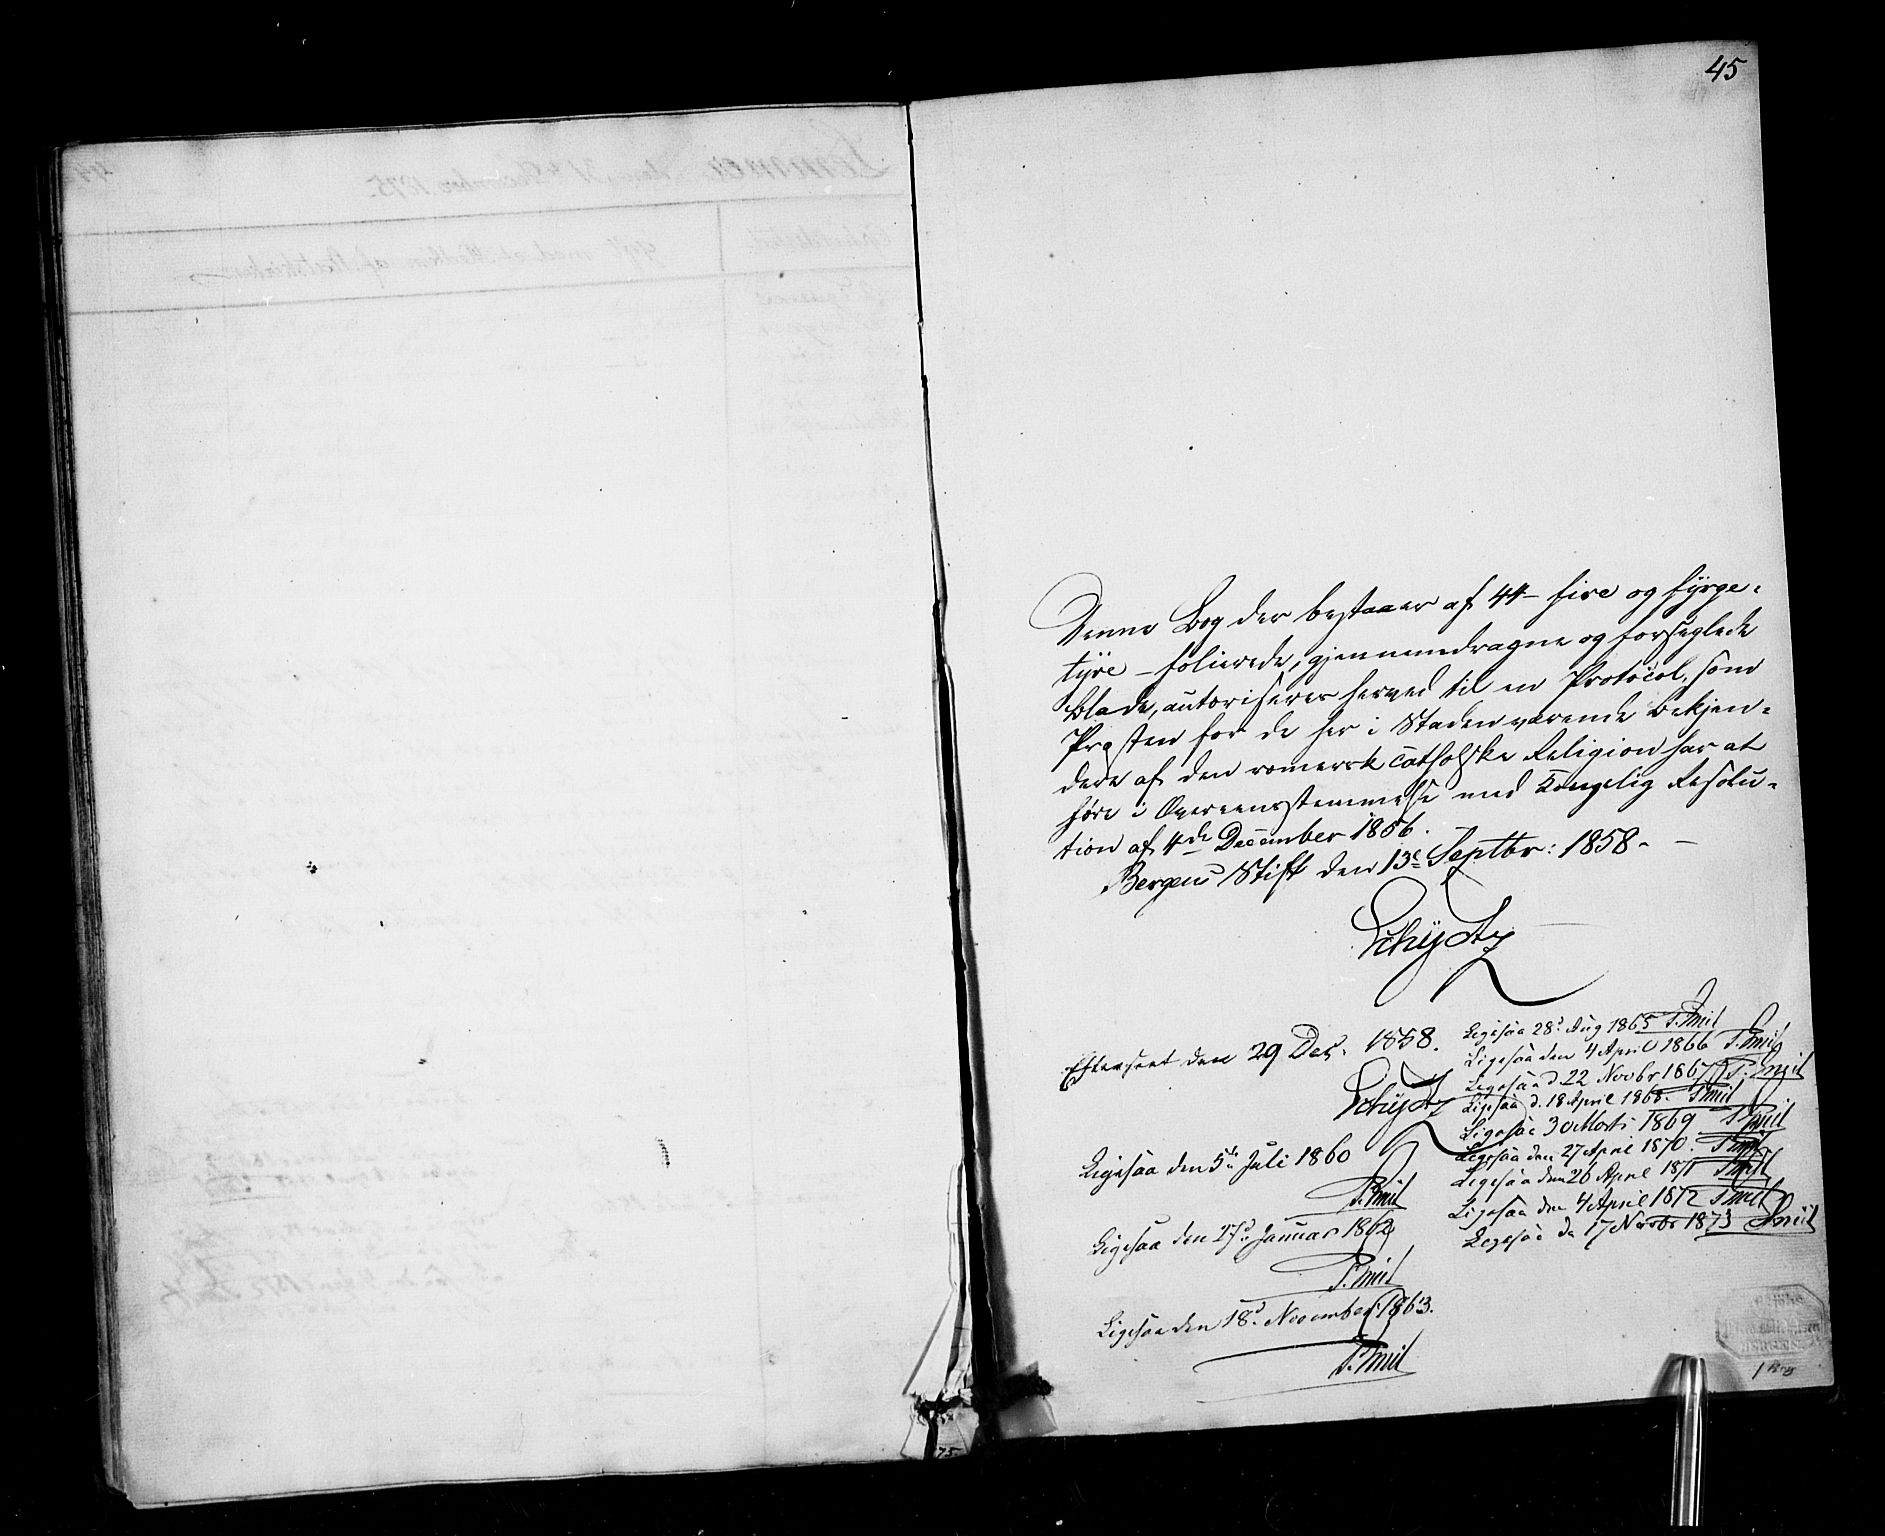 45
Denne Bog der bestaaer af 44 – fire og fyrge-
tyve – folierede, gjennemdragne og forseglede
Blade, autoriseres herved til en Protocol, som
Præsten for de her i Staden værende Bekjen-
dere af den romersk catholske Religion har at
føre i Overeensstemmelse med Kongelig Resolu-
tion af 4de December 1856.
Bergens Stift den 13e Septbr: 1858. –
Schydtz
Efterseet den 29 Dec. 1858.
Schydtz
Ligesaa den 5te Juli 1860
P. Smil
Ligesaa den 27d Januar 1862
P. Smil
Ligesaa den 18d November 1863.
P. Smil
Ligesaa 28d Aug 1865 P. Smil
Ligesaa den 4 April 1866 P. Smil
Ligesaa d 22 Novbr 1867 P. Smil
Ligesaa d. 18 April 1868. P Smil
Ligesaa 30 Marts 1869 P Smil
Ligesaa den 27 April 1870. P Smil
Ligesaa den 26 April 1871 P Smil
Ligesaa den 4 April 1872 P Smil
Ligesaa de 17 Novbr 1873 Smil